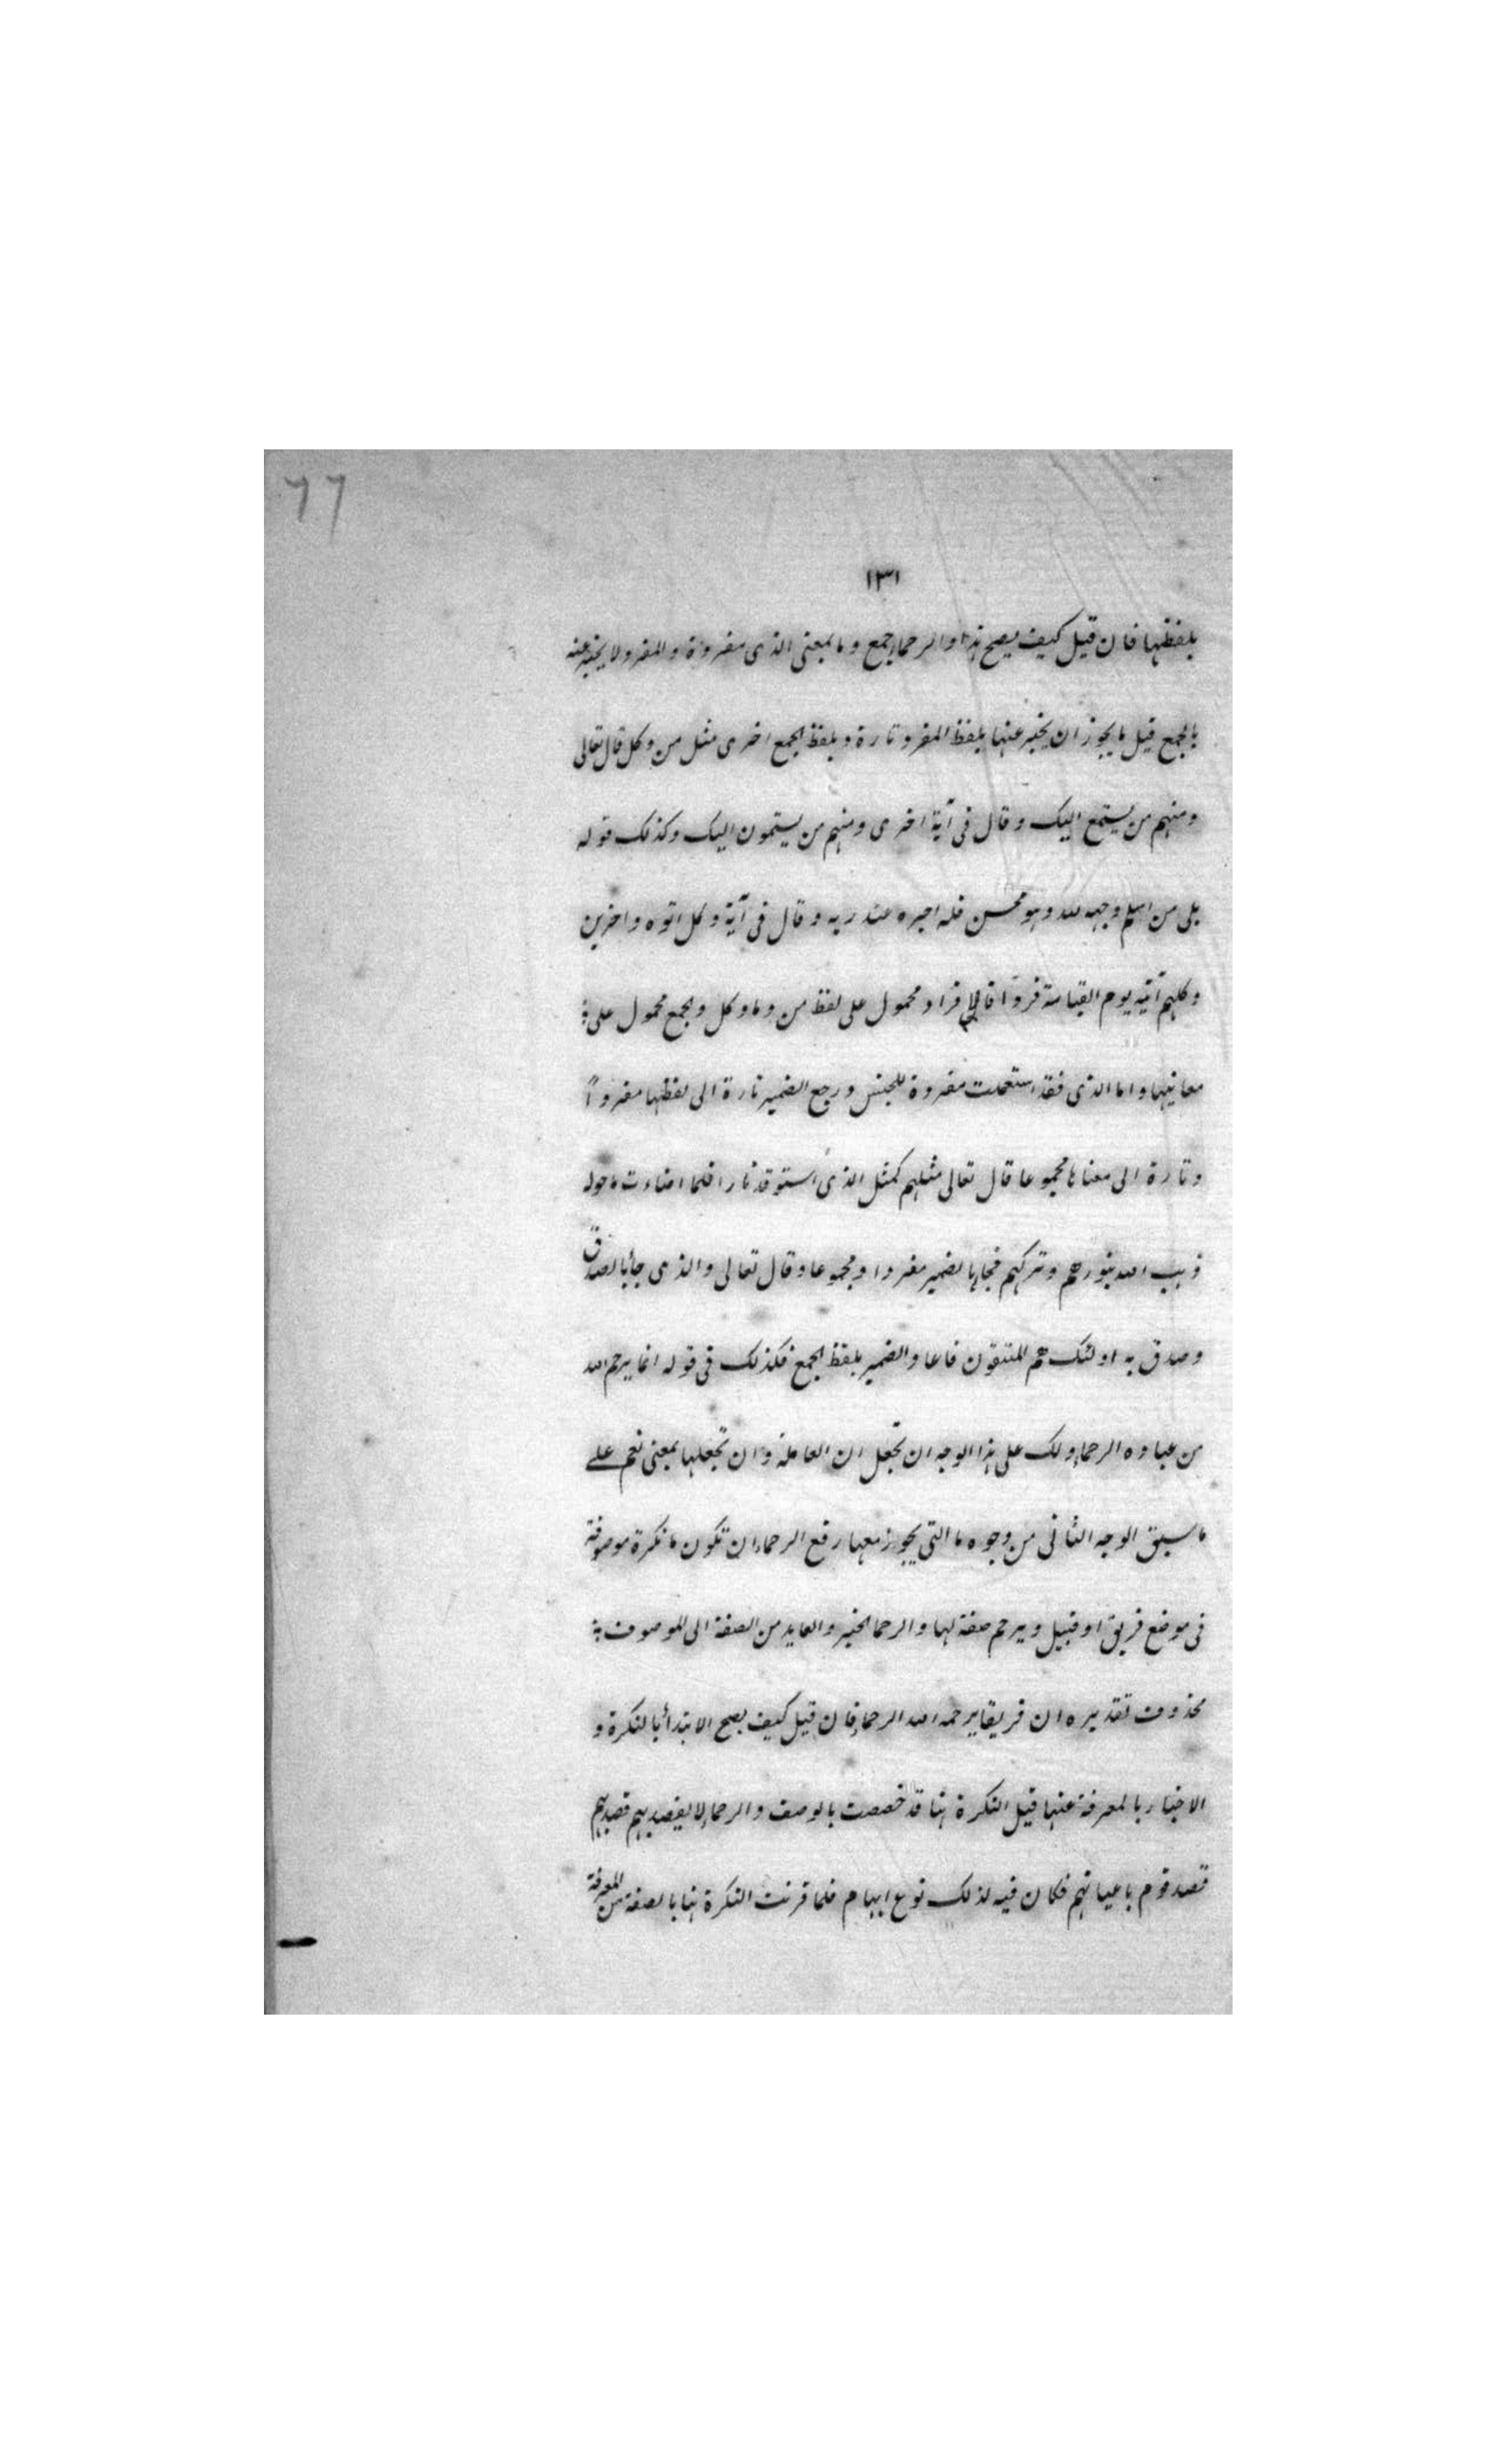 ٦٦
١٣١
بلفظها فان قيل كيف يصح هذا والرحماء جمع وما بمعنى الذى مفردة والمفرد لا يخبر عنه
بالجمع قيل ما يجوز ان يخبر عنها بلفظ المفرد تارة و بلفظ الجمع اخرى مثل من وكل قال تعالى
ومنهم من يستمع اليك وقال فى آية اخرى ومنهم من يستمعون اليك وكذلك قوله
بلى من اسلم وجهه لله وهو محسن فله اجره عند ربه وقال فى آية وكل اتوه واخرين
وكلهم آتيه يوم القيامة فردا فالافراد محمول على لفظ من وما وكل والجمع محمول على
معانيها واما الذى فقد استعملت مفردة للجنس ورجع الضمير تارة الى لفظها مفرداً
وتارة الى معناها مجموعا قال تعالى مثلهم كمثل الذى استوقد نارا فلما اضاءت ما حوله
ذهب الله بنورهم وتركهم فجاء بالضمير مفردا ومجموعا وقال تعالى والذى جاء بالصدق
وصدق به اولئك هم المتقون فاعاد الضمير بلفظ الجمع فكذلك فى قوله انما يرحم الله
من عباده الرحماء ولك على هذا الوجه ان تجعل ان العاملة وان تجعلها بمعنى نعم على
ما سبق الوجه الثانى من وجوه ما التى يجوز معها رفع الرحماء ان تكون ما نكرة موصوفة
فى موضع فريق او قبيل ويرحم صفة لها والرحماء الخبر والعايد من الصفة الى الموصوف
محذوف تقديره ان فريقا يرحمه الله الرحماء فان قيل كيف يصح الابتداء بالنكرة و
الاخبار بالمعرفة عنها قيل النكرة هنا قد خصصت بالوصف والرحماء لا يقصد بهم قصد هم
قصد قوم باعيانهم فكان فيه لذلك نوع ابهام فلما قربت النكرة هنا بالصفة من المعرفة